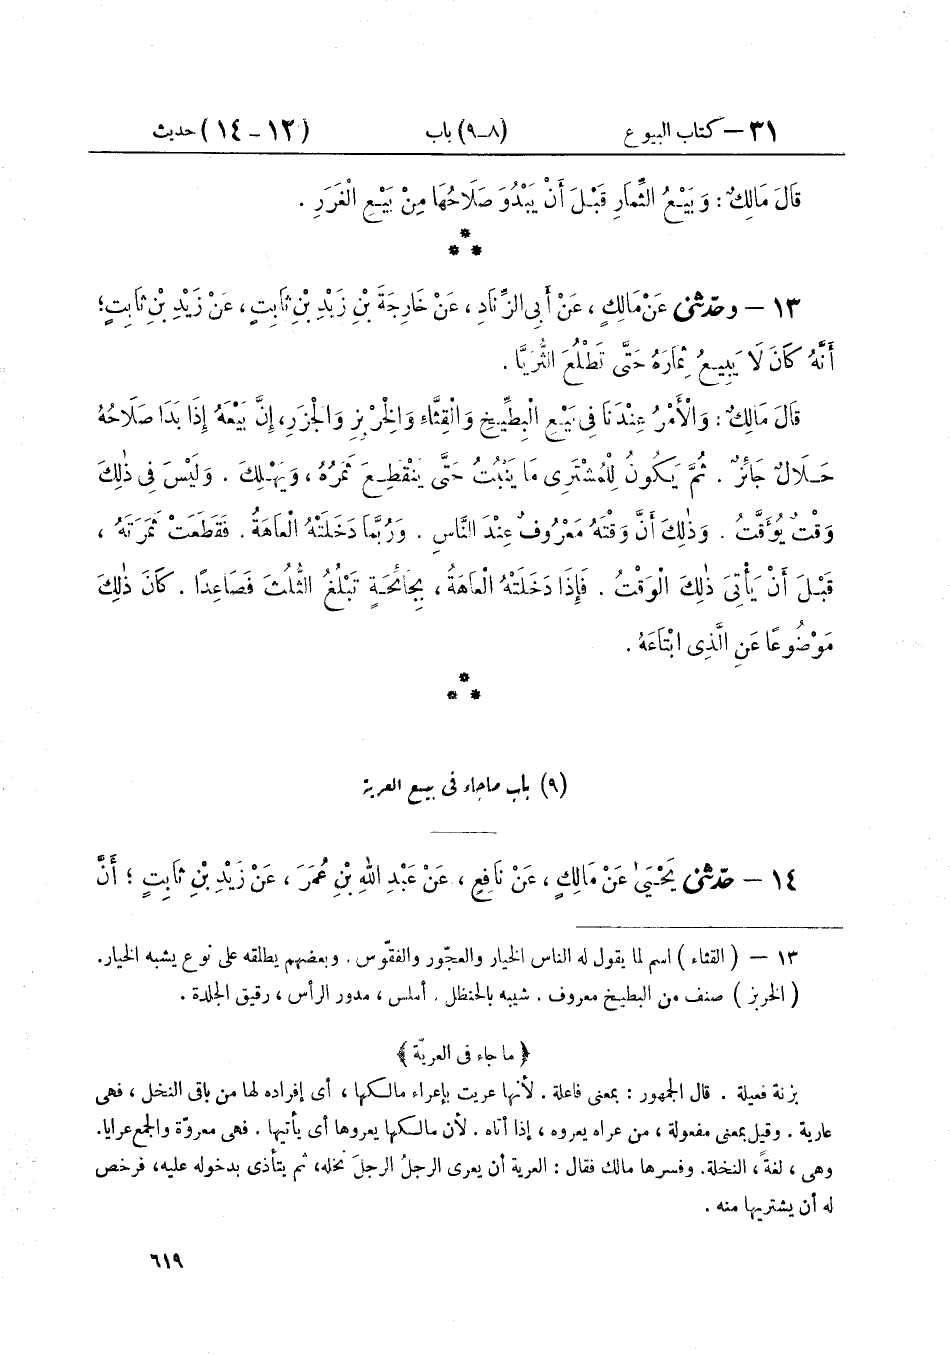 ٣١ – كتاب البيوع (٨-٩) باب (١٢-١٤) حديث
قَالَ مَالِكٌ: وَبَيْعُ الثِّمَارِ قَبْلَ أَنْ يَبْدُوَ صَلَاحُهَا مِنْ بَيْعِ الْغَرَرِ .
***
١٣ – وحدّثنى عَنْ مَالِكٍ ، عَنْ أَبِى الزِّنَادِ ، عَنْ خَارِجَةَ بْنِ زَيْدِ بْنِ ثَابِتٍ ، عَنْ زَيْدِ بْنِ ثَابِتٍ؛
أَنَّهُ كَانَ لَا يَبِيعُ ثِمَارَهُ حَتَّى تَطْلُعَ الثُّرَيَّا .
قَالَ مَالِكٌ: وَالْأَمْرُ عِنْدَنَا فِى بَيْعِ الْبِطِّيخِ وَالْقِثَّاءِ وَالْخِرْبِزِ وَالْجَزَرِ، إِنَّ بَيْعَهُ إِذَا بَدَا صَلَاحُهُ
حَلَالٌ جَائِزٌ . ثُمَّ يَكُونُ لِلْمُشْتَرِى مَا يَنْبُتُ حَتَّى يَنْقَطِعَ ثَمَرُهُ ، وَيَهْلِكَ . وَلَيْسَ فِى ذٰلِكَ
وَقْتٌ يُؤَقَّتُ . وَذٰلِكَ أَنَّ وَقْتَهُ مَعْرُوفٌ عِنْدَ النَّاسِ . وَرُبَّمَا دَخَلَتْهُ الْعَاهَةُ . فَقَطَعَتْ ثَمَرَتَهُ ،
قَبْلَ أَنْ يَأْتِىَ ذٰلِكَ الْوَقْتُ . فَإِذَا دَخَلَتْهُ الْعَاهَةُ ، بِجَائِحَةٍ تَبْلُغُ الثُّلُثَ فَصَاعِدًا . كَانَ ذٰلِكَ
مَوْضُوعًا عَنِ الَّذِى ابْتَاعَهُ .
***
(٩) باب ماجاء فى بيع العرية
١٤ – حدّثنى يَحْيَىٰ عَنْ مَالِكٍ ، عَنْ نَافِعٍ ، عَنْ عَبْدِ اللهِ بْنِ عُمَرَ ، عَنْ زَيْدِ بْنِ ثَابِتٍ ؛ أَنَّ
١٣ – ( القثاء ) اسم لما يقول له الناس الخيار والعجّور والفقّوس . وبعضهم يطلقه على نوع يشبه الخيار.
( الخربز ) صنف من البطيخ معروف . شبيه بالحنظل . أملس ، مدور الرأس ، رقيق الجلدة .
﴿ ما جاء فى العريّة ﴾
بزنة فعيلة . قال الجمهور : بمعنى فاعلة . لأنها عريت بإعراء مالكها ، أى إفراده لها من باقى النخل ، فهى
عارية . وقيل بمعنى مفعولة ، من عراه يعروه ، إذا أتاه . لأن مالكها يعروها أى يأتيها . فهى معروّة والجمع عرايا.
وهى ، لغةً ، النخلة. وفسرها مالك فقال : العرية أن يعرى الرجلُ الرجلَ نخله، ثم يتأذى بدخوله عليه، فرخص
له أن يشتريها منه .
٦١٩